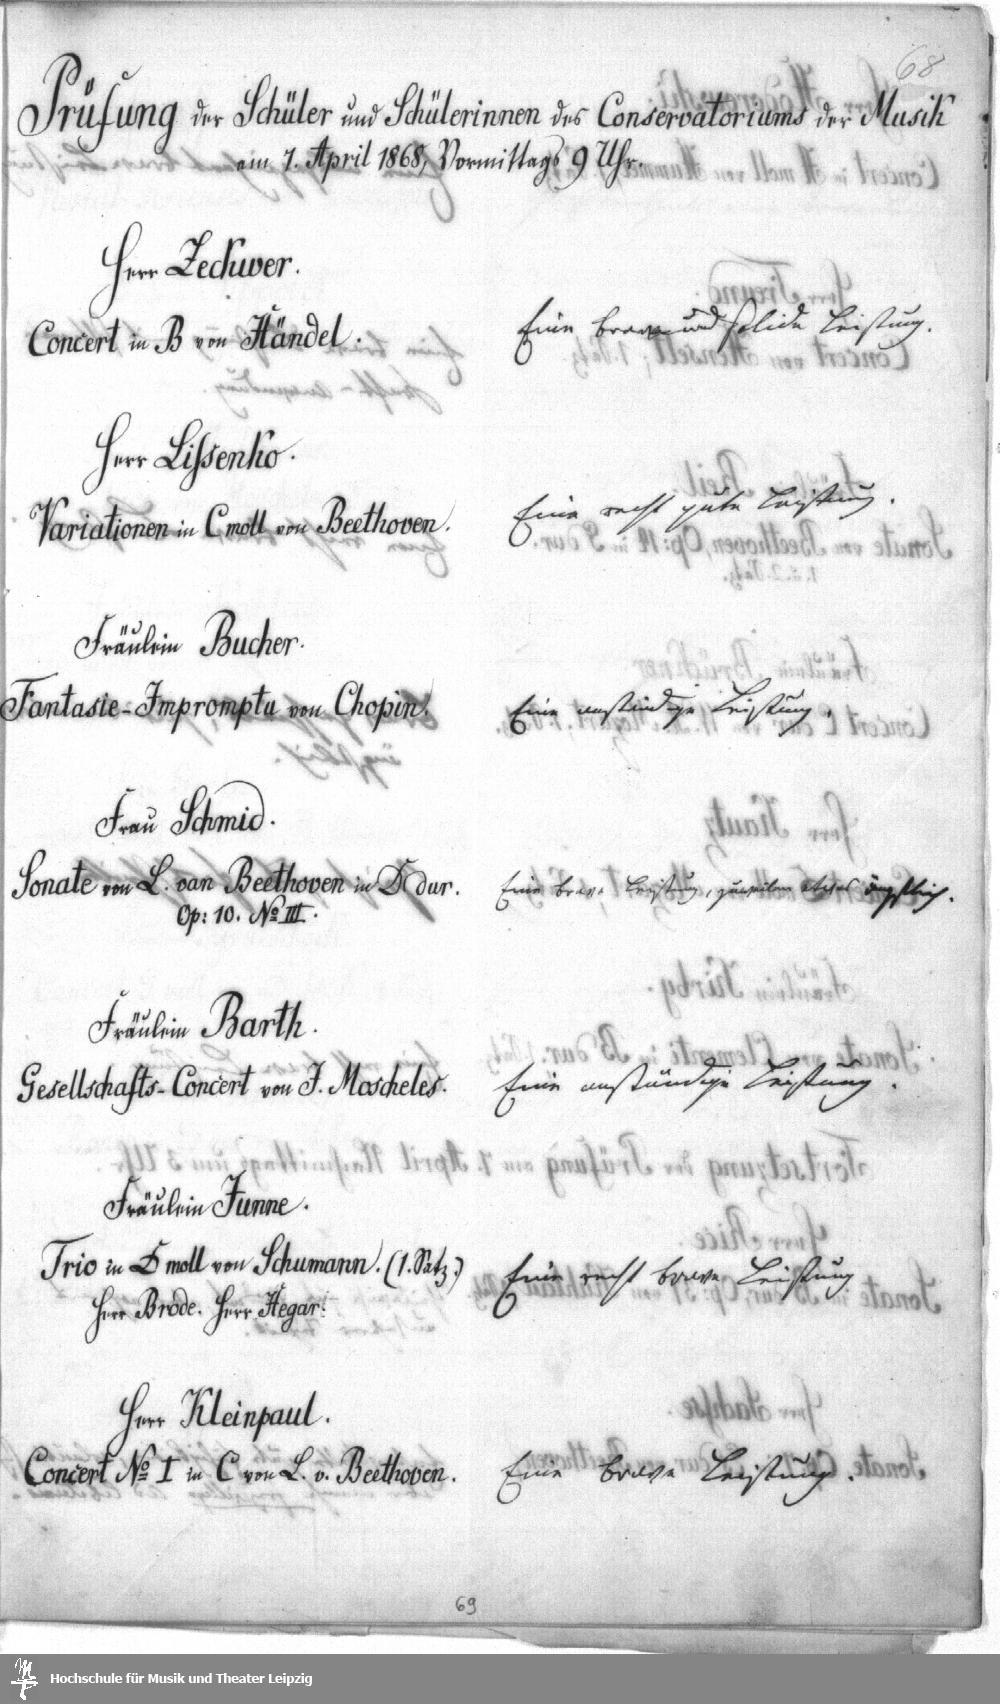 68
Prüfung der Schüler und Schülerinnen des Conservatoriums der Musik
am 7. April 1868, Vormittags 9 Uhr.
Herr Zeckwer.
Concert in B von Händel.
Eine brave und solide Leistung.
Herr Lissenko.
Variationen in C moll von Beethoven.
Eine recht gute Leistung.
Fräulein Bucher.
Fantasie-Impromptu von Chopin.
Eine anständige Leistung.
Frau Schmid.
Sonate von L. van Beethoven in D dur.
Op: 10. No III.
Eine brave Leistung, zuweilen etwas ängstlich.
Fräulein Barth.
Gesellschafts-Concert von J. Moscheles.
Eine anständige Leistung.
Fräulein Junne.
Trio in D moll von Schumann. (1. Satz.)
Herr Brode. Herr Hegar.
Eine recht brave Leistung
Herr Kleinpaul.
Concert No I in C von L. v. Beethoven.
Eine brave Leistung.
69
Hochschule für Musik und Theater Leipzig